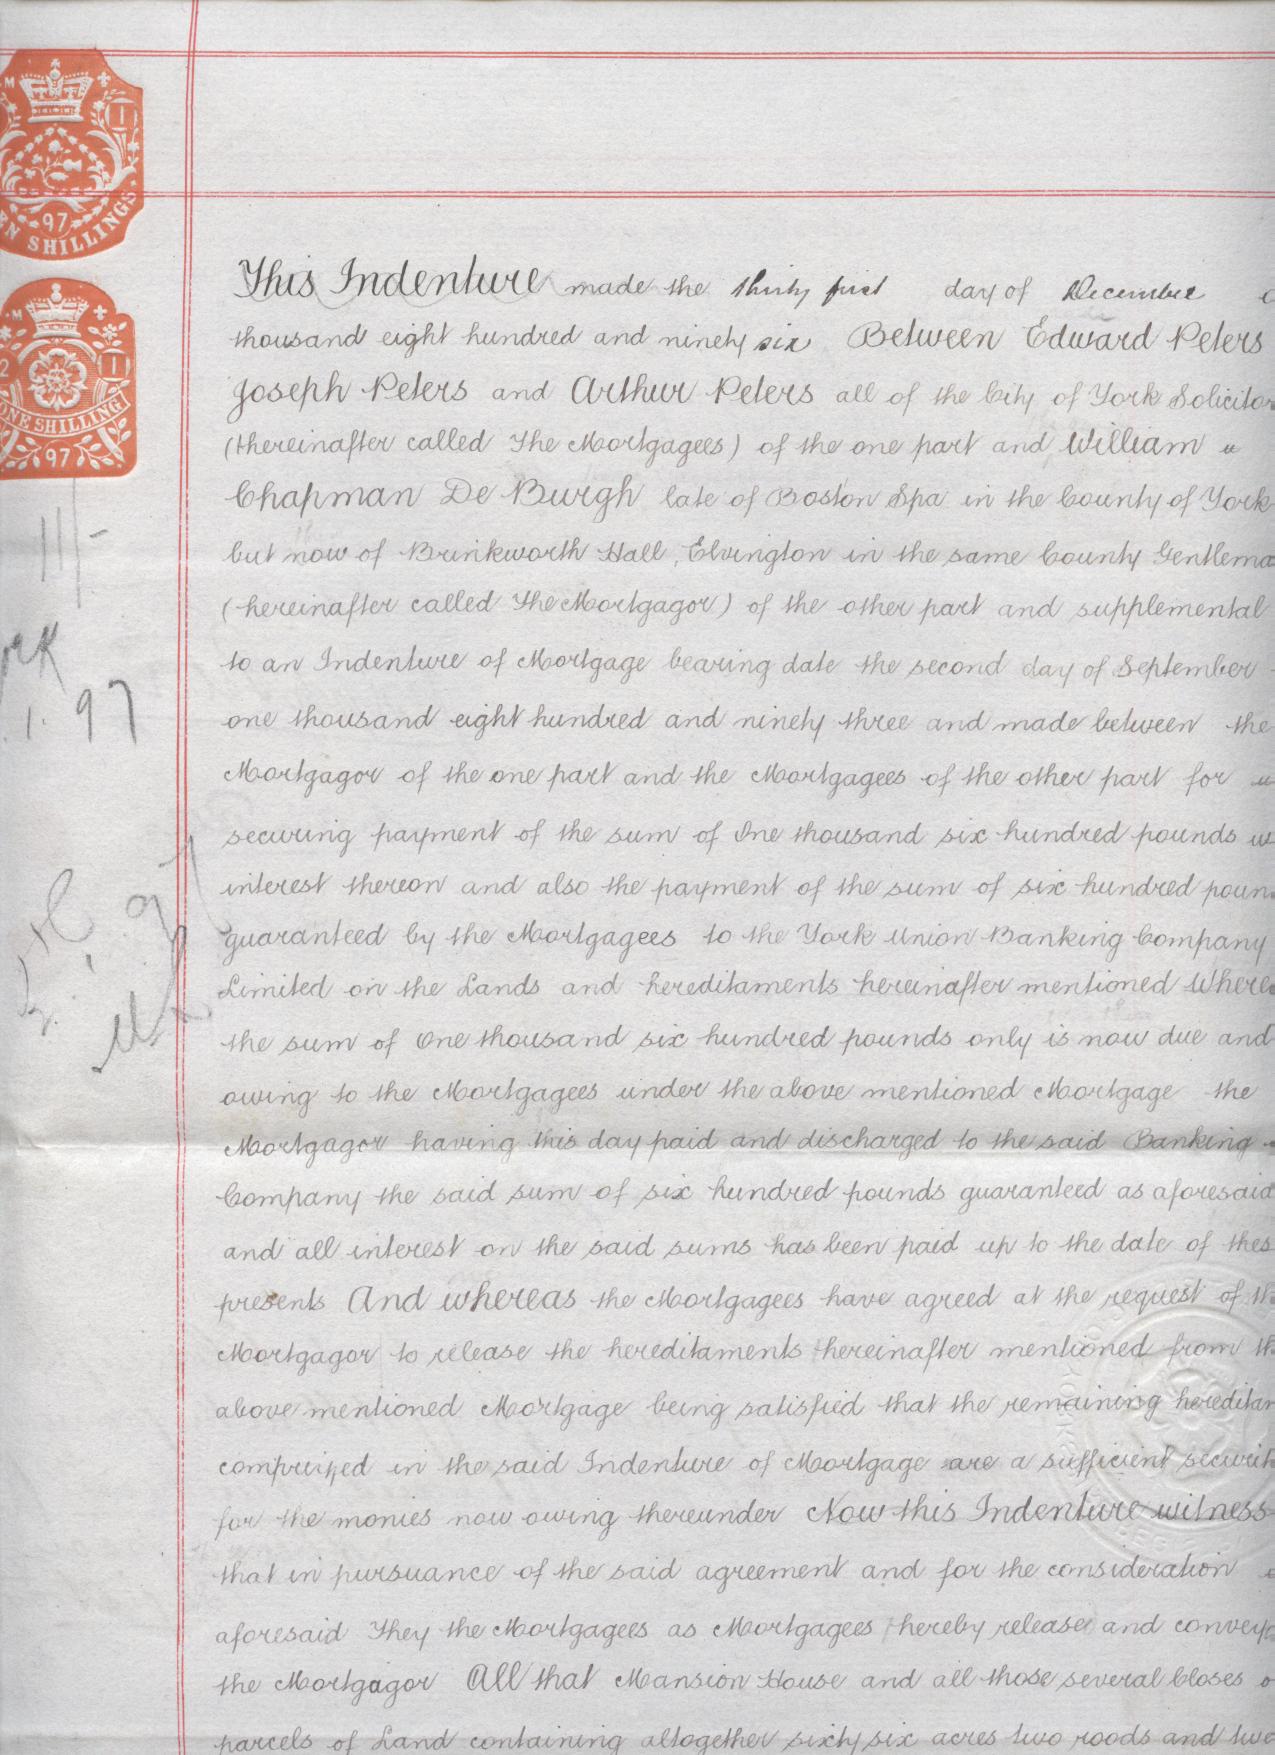 M
1
97
EN SHILLINGS
M
2 1
ONE SHILLING
97
This Indenture made the thirty first day of December
thousand eight hundred and ninety six Between Edward Peters
Joseph Peters and Arthur Peters all of the City of York Solicitor
(thereinafter called The Mortgagees) of the one part and William
Chapman De Burgh late of Boston Spa in the County of York
but now of Brinkworth Hall, Elvington in the same County Gentlema
(hereinafter called The Mortgagor) of the other part and supplemental
to an Indenture of Mortgage bearing date the second day of September
one thousand eight hundred and ninety three and made between the
Mortgagor of the one part and the Mortgagees of the other part for
securing payment of the sum of One thousand six hundred pounds w
interest thereon and also the payment of the sum of six hundred poun
guaranteed by the Mortgagees to the York Union Banking Company
Limited on the Lands and hereditaments hereinafter mentioned Where
the sum of One thousand six hundred pounds only is now due and
owing to the Mortgagees under the above mentioned Mortgage the
Mortgagor having this day paid and discharged to the said Banking
Company the said sum of six hundred pounds guaranteed as aforesaid
and all interest on the said sums has been paid up to the date of thes
presents And whereas the Mortgagees have agreed at the request of th
Mortgagor to release the hereditaments hereinafter mentioned from th
above mentioned Mortgage being satisfied that the remaining hereditam
comprised in the said Indenture of Mortgage are a sufficient securit
for the monies now owing thereunder Now this Indenture witness
that in pursuance of the said agreement and for the consideration
aforesaid They the Mortgagees as Mortgagees hereby release and convey
the Mortgagor All that Mansion House and all those several Closes o
parcels of Land containing altogether sixty six acres two roods and two
11/-
1. 97